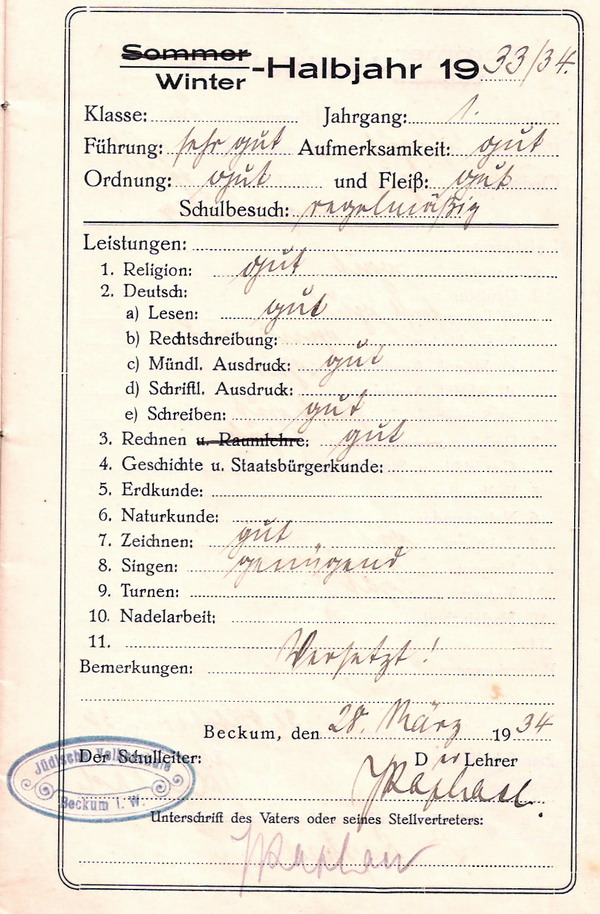 Sommer
Winter -Halbjahr 1933/34.
Klasse: Jahrgang: 1.
Führung: sehr gut Aufmerksamkeit: gut
Ordnung: gut und Fleiß: gut
Schulbesuch: regelmäßig
Leistungen:
1. Religion: gut
2. Deutsch:
a) Lesen: gut
b) Rechtschreibung:
c) Mündl. Ausdruck: gut
d) Schriftl. Ausdruck:
e) Schreiben: gut
3. Rechnen u. Raumlehre: gut
4. Geschichte u. Staatsbürgerkunde:
5. Erdkunde:
6. Naturkunde:
7. Zeichnen: gut
8. Singen: genügend
9. Turnen:
10. Nadelarbeit:
11.
Bemerkungen: Versetzt!
Beckum, den 28. März 1934
Der Schulleiter: Der Lehrer
Jüdische Volksschule
Beckum i. W.
Raphael.
Unterschrift des Vaters oder seines Stellvertreters: